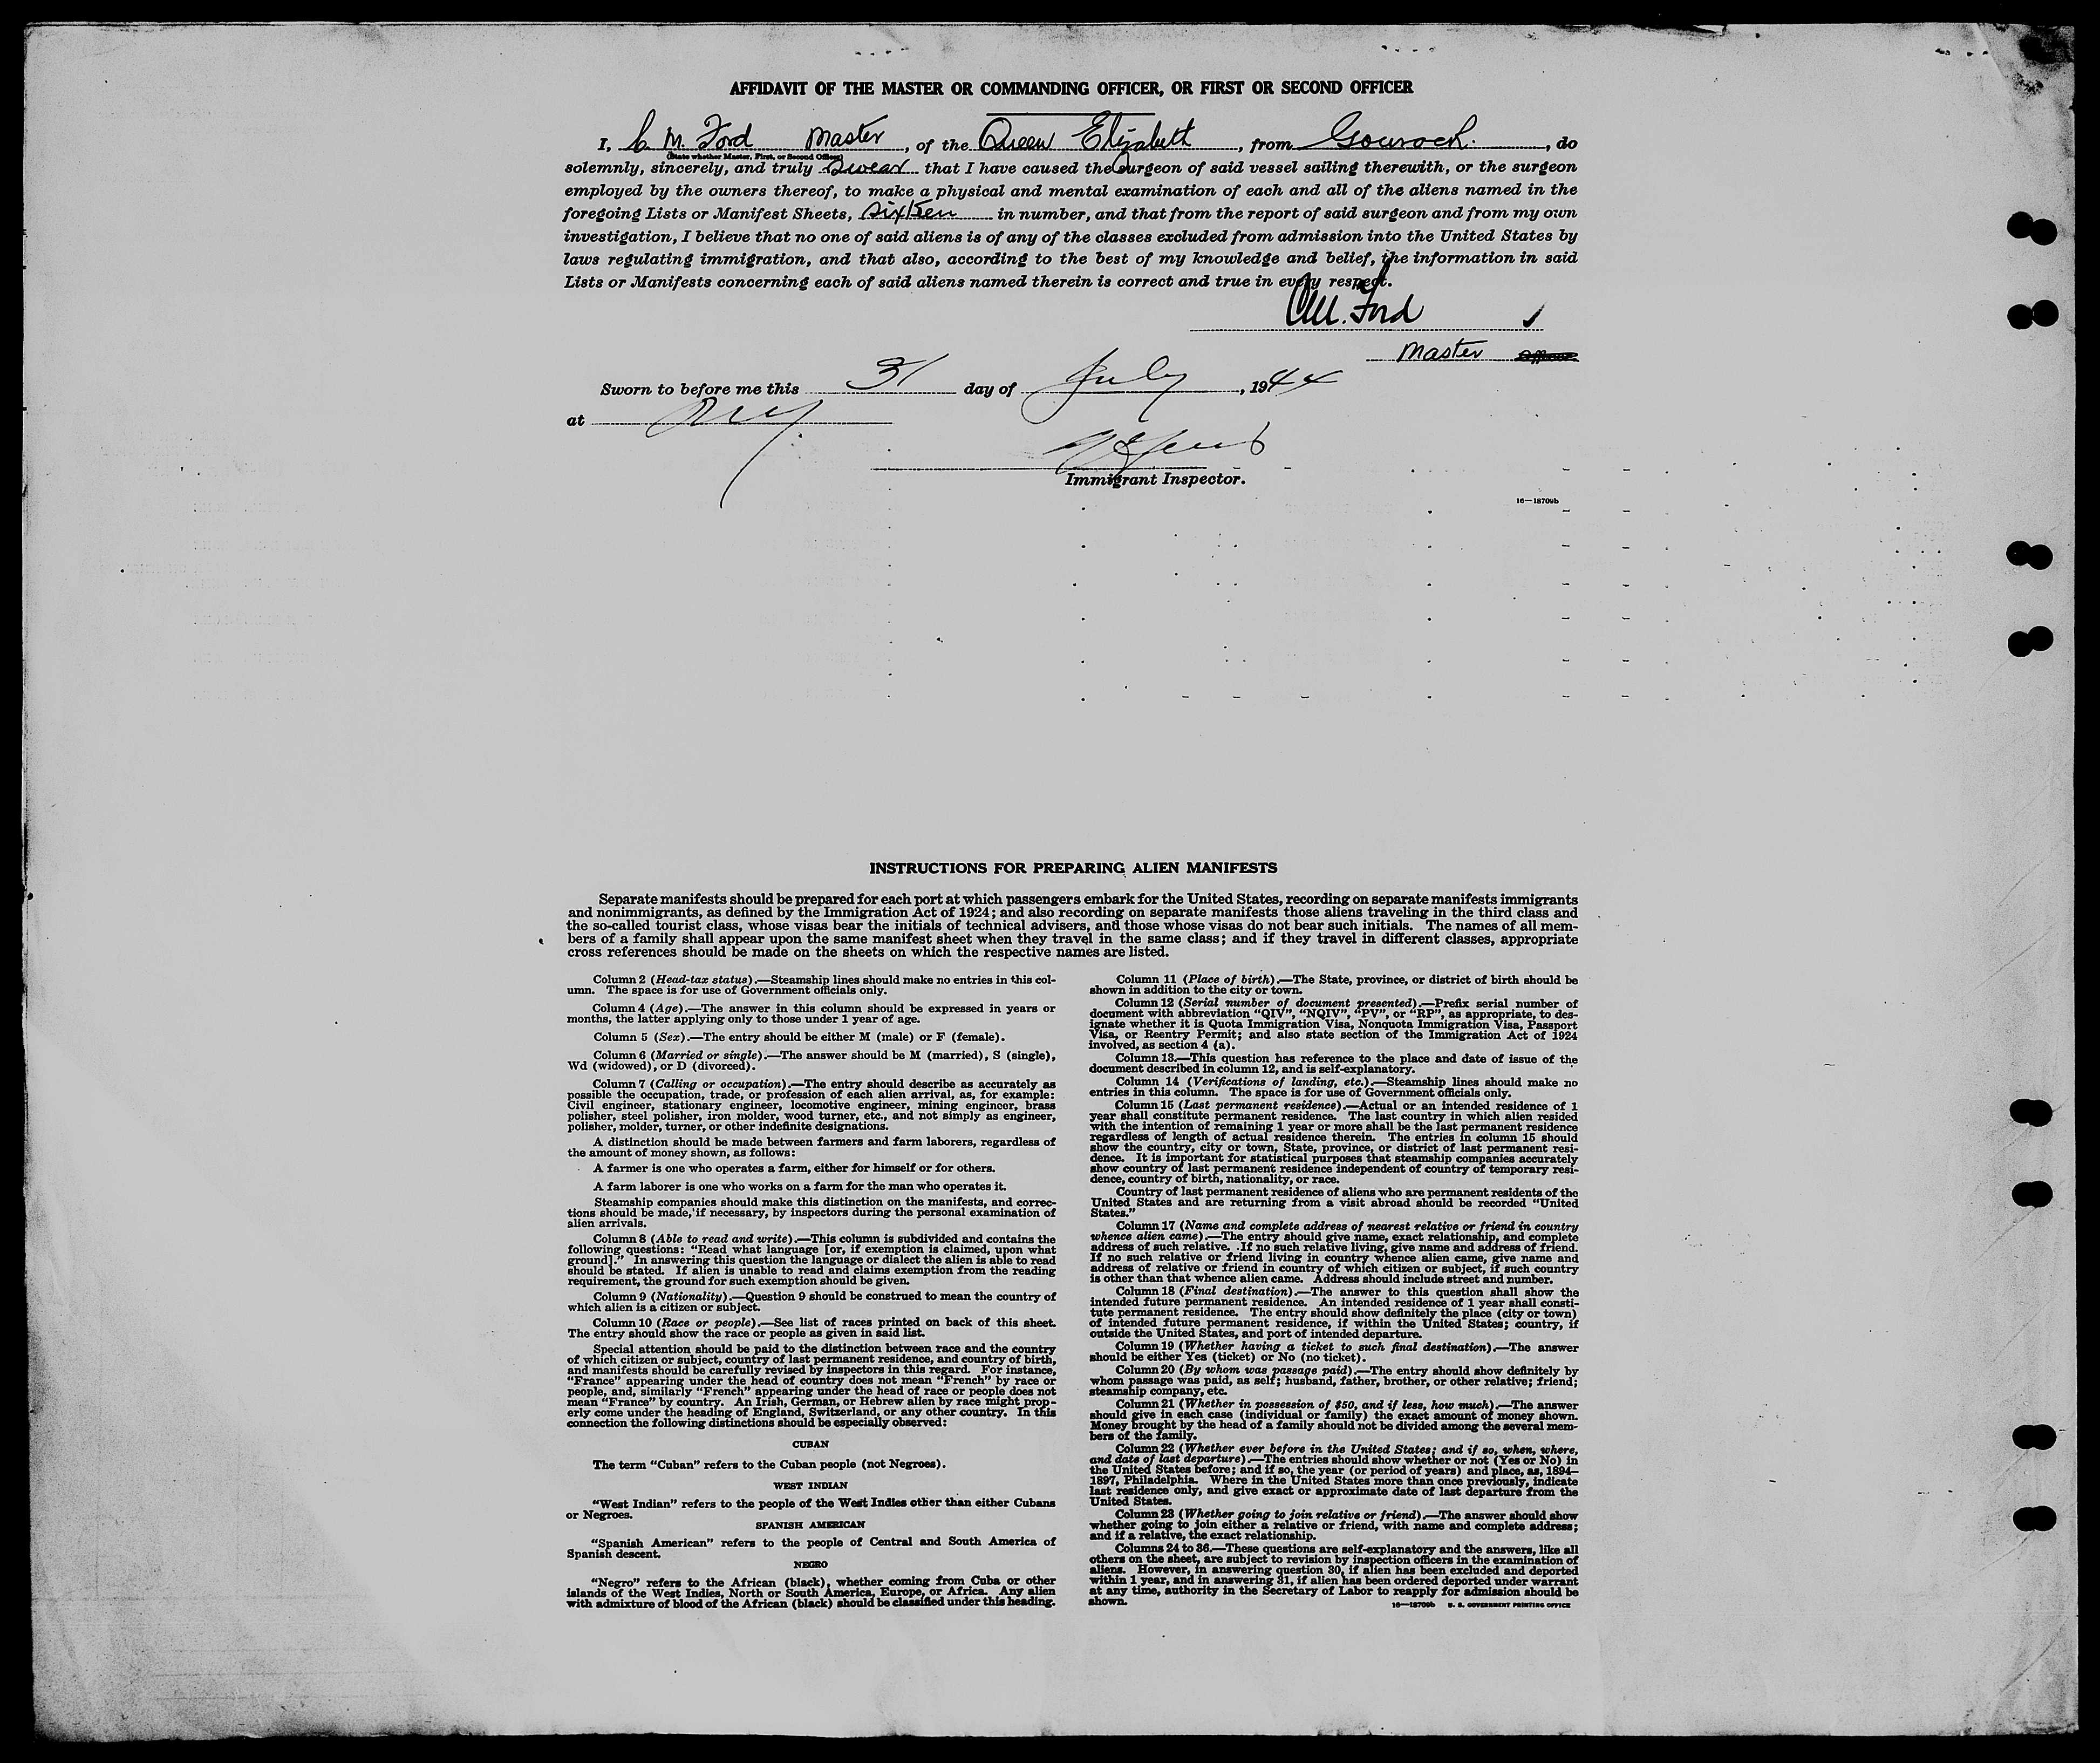 AFFIDAVIT OF THE MASTER OR COMMANDING OFFICER, OR FIRST OR SECOND OFFICER
I, C. M. Ford Master, of the Queen Elizabeth, from Gourock., do
(State whether Master, First, or Second Officer)
solemnly, sincerely, and truly Swear that I have caused the surgeon of said vessel sailing therewith, or the surgeon
employed by the owners thereof, to make a physical and mental examination of each and all of the aliens named in the
foregoing Lists or Manifest Sheets, sixteen in number, and that from the report of said surgeon and from my own
investigation, I believe that no one of said aliens is of any of the classes excluded from admission into the United States by
laws regulating immigration, and that also, according to the best of my knowledge and belief, the information in said
Lists or Manifests concerning each of said aliens named therein is correct and true in every respect.
CM. Ford
Master Officer.
Sworn to before me this 31 day of July, 1944
at NY
Immigrant Inspector.
16—18709b
INSTRUCTIONS FOR PREPARING ALIEN MANIFESTS
Separate manifests should be prepared for each port at which passengers embark for the United States, recording on separate manifests immigrants
and nonimmigrants, as defined by the Immigration Act of 1924; and also recording on separate manifests those aliens traveling in the third class and
the so-called tourist class, whose visas bear the initials of technical advisers, and those whose visas do not bear such initials. The names of all mem-
bers of a family shall appear upon the same manifest sheet when they travel in the same class; and if they travel in different classes, appropriate
cross references should be made on the sheets on which the respective names are listed.
Column 2 (Head-tax status).—Steamship lines should make no entries in this col-
umn. The space is for use of Government officials only.
Column 4 (Age).—The answer in this column should be expressed in years or
months, the latter applying only to those under 1 year of age.
Column 5 (Sex).—The entry should be either M (male) or F (female).
Column 6 (Married or single).—The answer should be M (married), S (single),
Wd (widowed), or D (divorced).
Column 7 (Calling or occupation).—The entry should describe as accurately as
possible the occupation, trade, or profession of each alien arrival, as, for example:
Civil engineer, stationary engineer, locomotive engineer, mining engineer, brass
polisher, steel polisher, iron molder, wood turner, etc., and not simply as engineer,
polisher, molder, turner, or other indefinite designations.
A distinction should be made between farmers and farm laborers, regardless of
the amount of money shown, as follows:
A farmer is one who operates a farm, either for himself or for others.
A farm laborer is one who works on a farm for the man who operates it.
Steamship companies should make this distinction on the manifests, and correc-
tions should be made, if necessary, by inspectors during the personal examination of
alien arrivals.
Column 8 (Able to read and write).—This column is subdivided and contains the
following questions: “Read what language [or, if exemption is claimed, upon what
ground].” In answering this question the language or dialect the alien is able to read
should be stated. If alien is unable to read and claims exemption from the reading
requirement, the ground for such exemption should be given.
Column 9 (Nationality).—Question 9 should be construed to mean the country of
which alien is a citizen or subject.
Column 10 (Race or people).—See list of races printed on back of this sheet.
The entry should show the race or people as given in said list.
Special attention should be paid to the distinction between race and the country
of which citizen or subject, country of last permanent residence, and country of birth,
and manifests should be carefully revised by inspectors in this regard. For instance,
“France” appearing under the head of country does not mean “French” by race or
people, and, similarly “French” appearing under the head of race or people does not
mean “France” by country. An Irish, German, or Hebrew alien by race might prop-
erly come under the heading of England, Switzerland, or any other country. In this
connection the following distinctions should be especially observed:
CUBAN
The term “Cuban” refers to the Cuban people (not Negroes).
WEST INDIAN
“West Indian” refers to the people of the West Indies other than either Cubans
or Negroes.
SPANISH AMERICAN
“Spanish American” refers to the people of Central and South America of
Spanish descent.
NEGRO
“Negro” refers to the African (black), whether coming from Cuba or other
islands of the West Indies, North or South America, Europe, or Africa. Any alien
with admixture of blood of the African (black) should be classified under this heading.
Column 11 (Place of birth).—The State, province, or district of birth should be
shown in addition to the city or town.
Column 12 (Serial number of document presented).—Prefix serial number of
document with abbreviation “QIV”, “NQIV”, “PV”, or “RP”, as appropriate, to des-
ignate whether it is Quota Immigration Visa, Nonquota Immigration Visa, Passport
Visa, or Reentry Permit; and also state section of the Immigration Act of 1924
involved, as section 4 (a).
Column 13.—This question has reference to the place and date of issue of the
document described in column 12, and is self-explanatory.
Column 14 (Verifications of landing, etc.).—Steamship lines should make no
entries in this column. The space is for use of Government officials only.
Column 15 (Last permanent residence).—Actual or an intended residence of 1
year shall constitute permanent residence. The last country in which alien resided
with the intention of remaining 1 year or more shall be the last permanent residence
regardless of length of actual residence therein. The entries in column 15 should
show the country, city or town, State, province, or district of last permanent resi-
dence. It is important for statistical purposes that steamship companies accurately
show country of last permanent residence independent of country of temporary resi-
dence, country of birth, nationality, or race.
Country of last permanent residence of aliens who are permanent residents of the
United States and are returning from a visit abroad should be recorded “United
States.”
Column 17 (Name and complete address of nearest relative or friend in country
whence alien came).—The entry should give name, exact relationship, and complete
address of such relative. If no such relative living, give name and address of friend.
If no such relative or friend living in country whence alien came, give name and
address of relative or friend in country of which citizen or subject, if such country
is other than that whence alien came. Address should include street and number.
Column 18 (Final destination).—The answer to this question shall show the
intended future permanent residence. An intended residence of 1 year shall consti-
tute permanent residence. The entry should show definitely the place (city or town)
of intended future permanent residence, if within the United States; country, if
outside the United States, and port of intended departure.
Column 19 (Whether having a ticket to such final destination).—The answer
should be either Yes (ticket) or No (no ticket).
Column 20 (By whom was passage paid).—The entry should show definitely by
whom passage was paid, as self; husband, father, brother, or other relative; friend;
steamship company, etc.
Column 21 (Whether in possession of $50, and if less, how much).—The answer
should give in each case (individual or family) the exact amount of money shown.
Money brought by the head of a family should not be divided among the several mem-
bers of the family.
Column 22 (Whether ever before in the United States; and if so, when, where,
and date of last departure).—The entries should show whether or not (Yes or No) in
the United States before; and if so, the year (or period of years) and place, as, 1894–
1897, Philadelphia. Where in the United States more than once previously, indicate
last residence only, and give exact or approximate date of last departure from the
United States.
Column 23 (Whether going to join relative or friend).—The answer should show
whether going to join either a relative or friend, with name and complete address;
and if a relative, the exact relationship.
Columns 24 to 36.—These questions are self-explanatory and the answers, like all
others on the sheet, are subject to revision by inspection officers in the examination of
aliens. However, in answering question 30, if alien has been excluded and deported
within 1 year, and in answering 31, if alien has been ordered deported under warrant
at any time, authority in the Secretary of Labor to reapply for admission should be
shown.
16—18709b U. S. GOVERNMENT PRINTING OFFICE